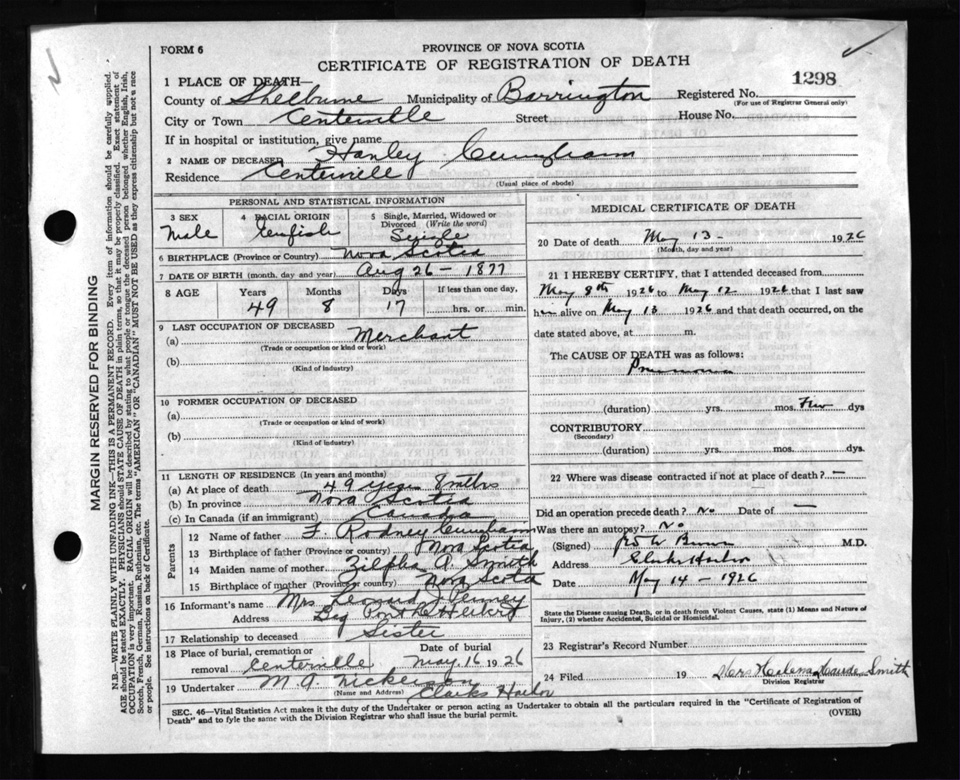 FORM 6
PROVINCE OF NOVA SCOTIA
CERTIFICATE OF REGISTRATION OF DEATH
1298
1 PLACE OF DEATH—
County of Shelburne Municipality of Barrington Registered No.
(For use of Registrar General only)
City or Town Centerville Street House No.
If in hospital or institution, give name
2 NAME OF DECEASED Hanley Cunnham
Residence Centervill
(Usual place of abode)
PERSONAL AND STATISTICAL INFORMATION
3 SEX 4 RACIAL ORIGIN 5 Single, Married, Widowed or Divorced (Write the word)
Male Single
6 BIRTHPLACE (Province or Country) Nova Scotia
7 DATE OF BIRTH (month, day and year) Aug 26 – 1877
8 AGE Years Months Days If less than one day,
49 8 17 hrs. or min.
9 LAST OCCUPATION OF DECEASED
(a) Merchant
(Trade or occupation or kind of work)
(b)
(Kind of industry)
10 FORMER OCCUPATION OF DECEASED
(a)
(Trade or occupation or kind of work)
(b)
(Kind of industry)
11 LENGTH OF RESIDENCE (In years and months)
(a) At place of death 49 years 8 mths
(b) In province Nova Scotia
(c) In Canada (if an immigrant) Canada
Parents
12 Name of father F. Rodney Cunnham
13 Birthplace of father (Province or country) Nova Scotia
14 Maiden name of mother Zilpha A. Smith
15 Birthplace of mother (Province or country) Nova Scotia
16 Informant's name Mrs Leonard J. Penney
Address Beg Port La Heibert
17 Relationship to deceased Sister
18 Place of burial, cremation or removal Centerville Date of burial May 16 1926
19 Undertaker M. A. Nickerson
(Name and Address) Clarks Harbor
MEDICAL CERTIFICATE OF DEATH
20 Date of death May 13 – 1926
(Month, day and year)
21 I HEREBY CERTIFY, that I attended deceased from
May 8th 1926 to May 12 1926 that I last saw
him alive on May 13 1926 and that death occurred, on the
date stated above, at m.
The CAUSE OF DEATH was as follows:
Pneumonia
(duration) yrs. mos. Few dys
CONTRIBUTORY
(Secondary)
(duration) yrs. mos. dys
22 Where was disease contracted if not at place of death? —
Did an operation precede death? No Date of —
Was there an autopsy? No
(Signed) M.D.
Address Clarks Harbor
Date May 14 – 1926
State the Disease causing Death, or in death from Violent Causes, state (1) Means and Nature of
Injury, (2) whether Accidental, Suicidal or Homicidal.
23 Registrar's Record Number
24 Filed 19 Maude Smith
Division Registrar
SEC. 46—Vital Statistics Act makes it the duty of the Undertaker or person acting as Undertaker to obtain all the particulars required in the "Certificate of Registration of
Death" and to fyle the same with the Division Registrar who shall issue the burial permit.
(OVER)
MARGIN RESERVED FOR BINDING
N.B.—WRITE PLAINLY WITH UNFADING INK—THIS IS A PERMANENT RECORD. Every item of information should be carefully supplied.
AGE should be stated EXACTLY. PHYSICIANS should STATE CAUSE OF DEATH in plain terms, so that it may be properly classified. Exact statement of
OCCUPATION is very important. RACIAL ORIGIN will be described by stating to what people or tongue the deceased person belonged whether English, Irish,
Scotch, French, German, Russian, Ruthenian, etc. The terms "AMERICAN" OR "CANADIAN" MUST NOT BE USED as they express citizenship but not a race
or people. See instructions on back of Certificate.